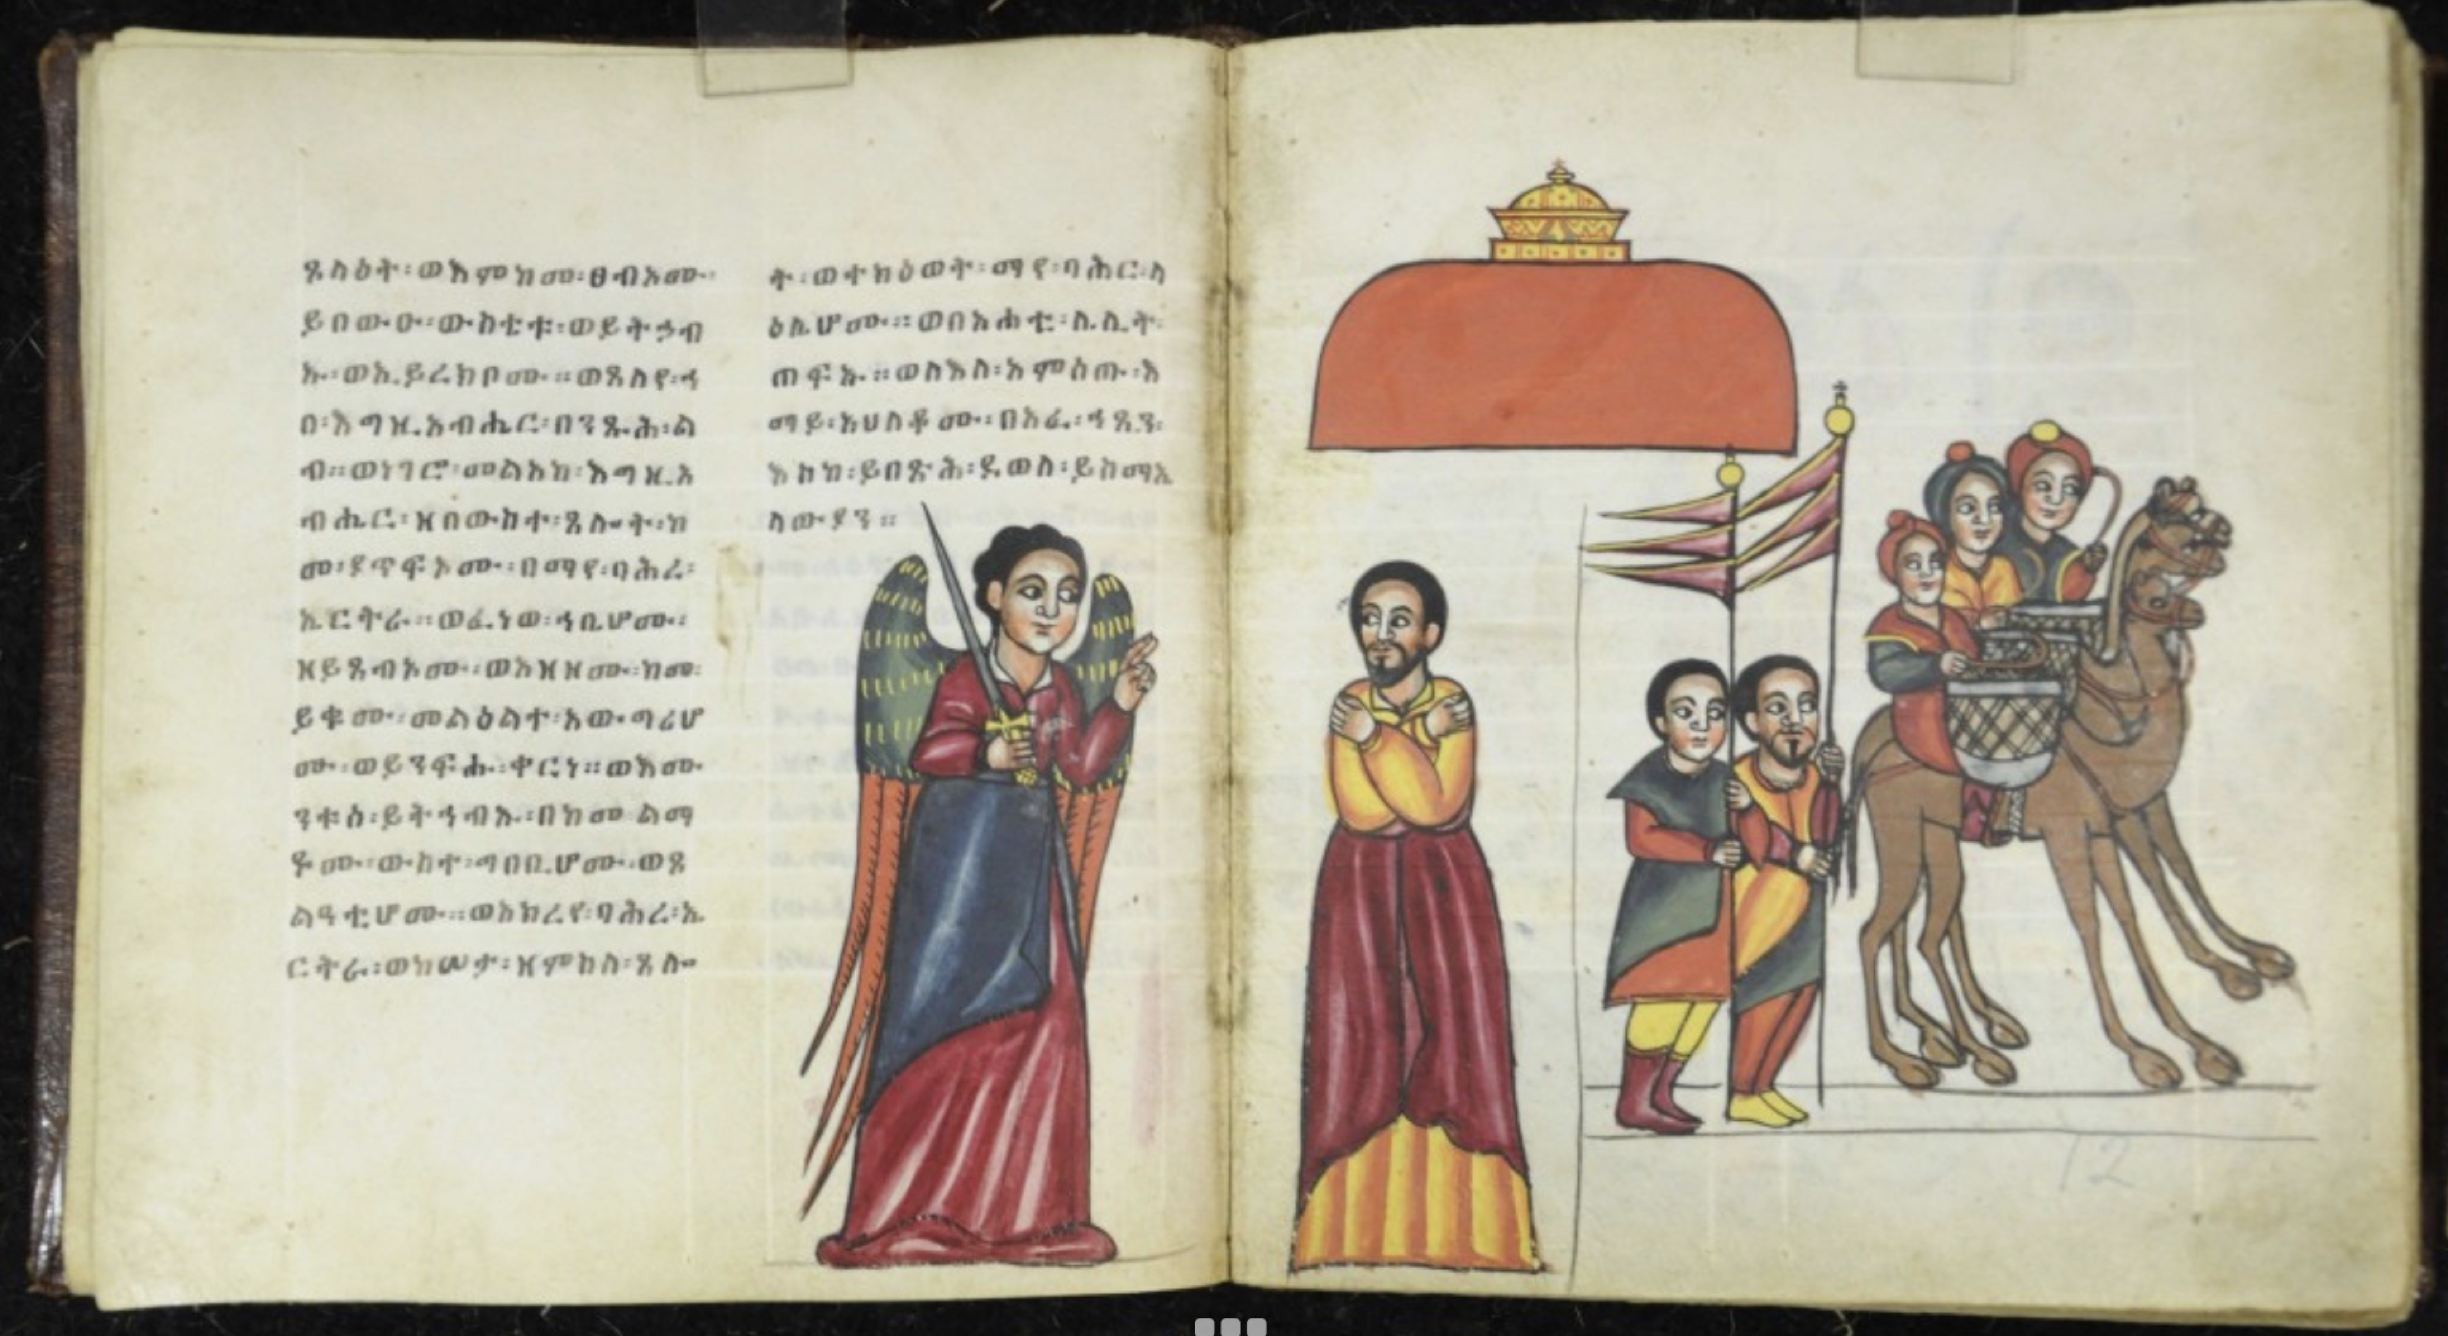 ጸላዕት፡ወእምከመ፡ፀብአሙ፡
ይበውኡ፡ውስቴቱ፡ወይትኃብ
ኡ፡ወኢይረክቦሙ።ወጸለየ፡ኀ
በ፡እግዚአብሔር፡በንጹሕ፡ል
ብ።ወነገሮ፡መልአከ፡እግዚአ
ብሔር፡ዘበውስተ፡ጸሎት፡ከ
መ፡ያጥፍኦሙ፡በማየ፡ባሕረ፡
ኤርትራ።ወፈነወ፡ኀቢሆሙ፡
ዘይጸብኦሙ፡ወአዘዞሙ፡ከመ፡
ይቁሙ፡መልዕልተ፡አውግሪሆ
ሙ፡ወይንፍሑ፡ቀርነ።ወእሙ
ንቱሰ፡ይትኀብኡ፡በከመ፡ልማ
ዶሙ፡ውስተ፡ግበቢሆሙ፡ወጸ
ልዓቲሆሙ።ወአክረየ፡ባሕረ፡ኤ
ርትራ፡ወከሠታ፡ዘምስለ፡ጸሎ
ት፡ወተክዕወት፡ማየ፡ባሕር፡ላ
ዕሌሆሙ።ወበአሐቲ፡ሌሊት፡
ጠፍኡ።ወለእለ፡አምሰጡ፡እ
ማይ፡አህለቆሙ፡በአፈ፡ኀጺን፡
እስከ፡ይበጽሕ፡ደወለ፡ይስማኤ
ላውያን።
12